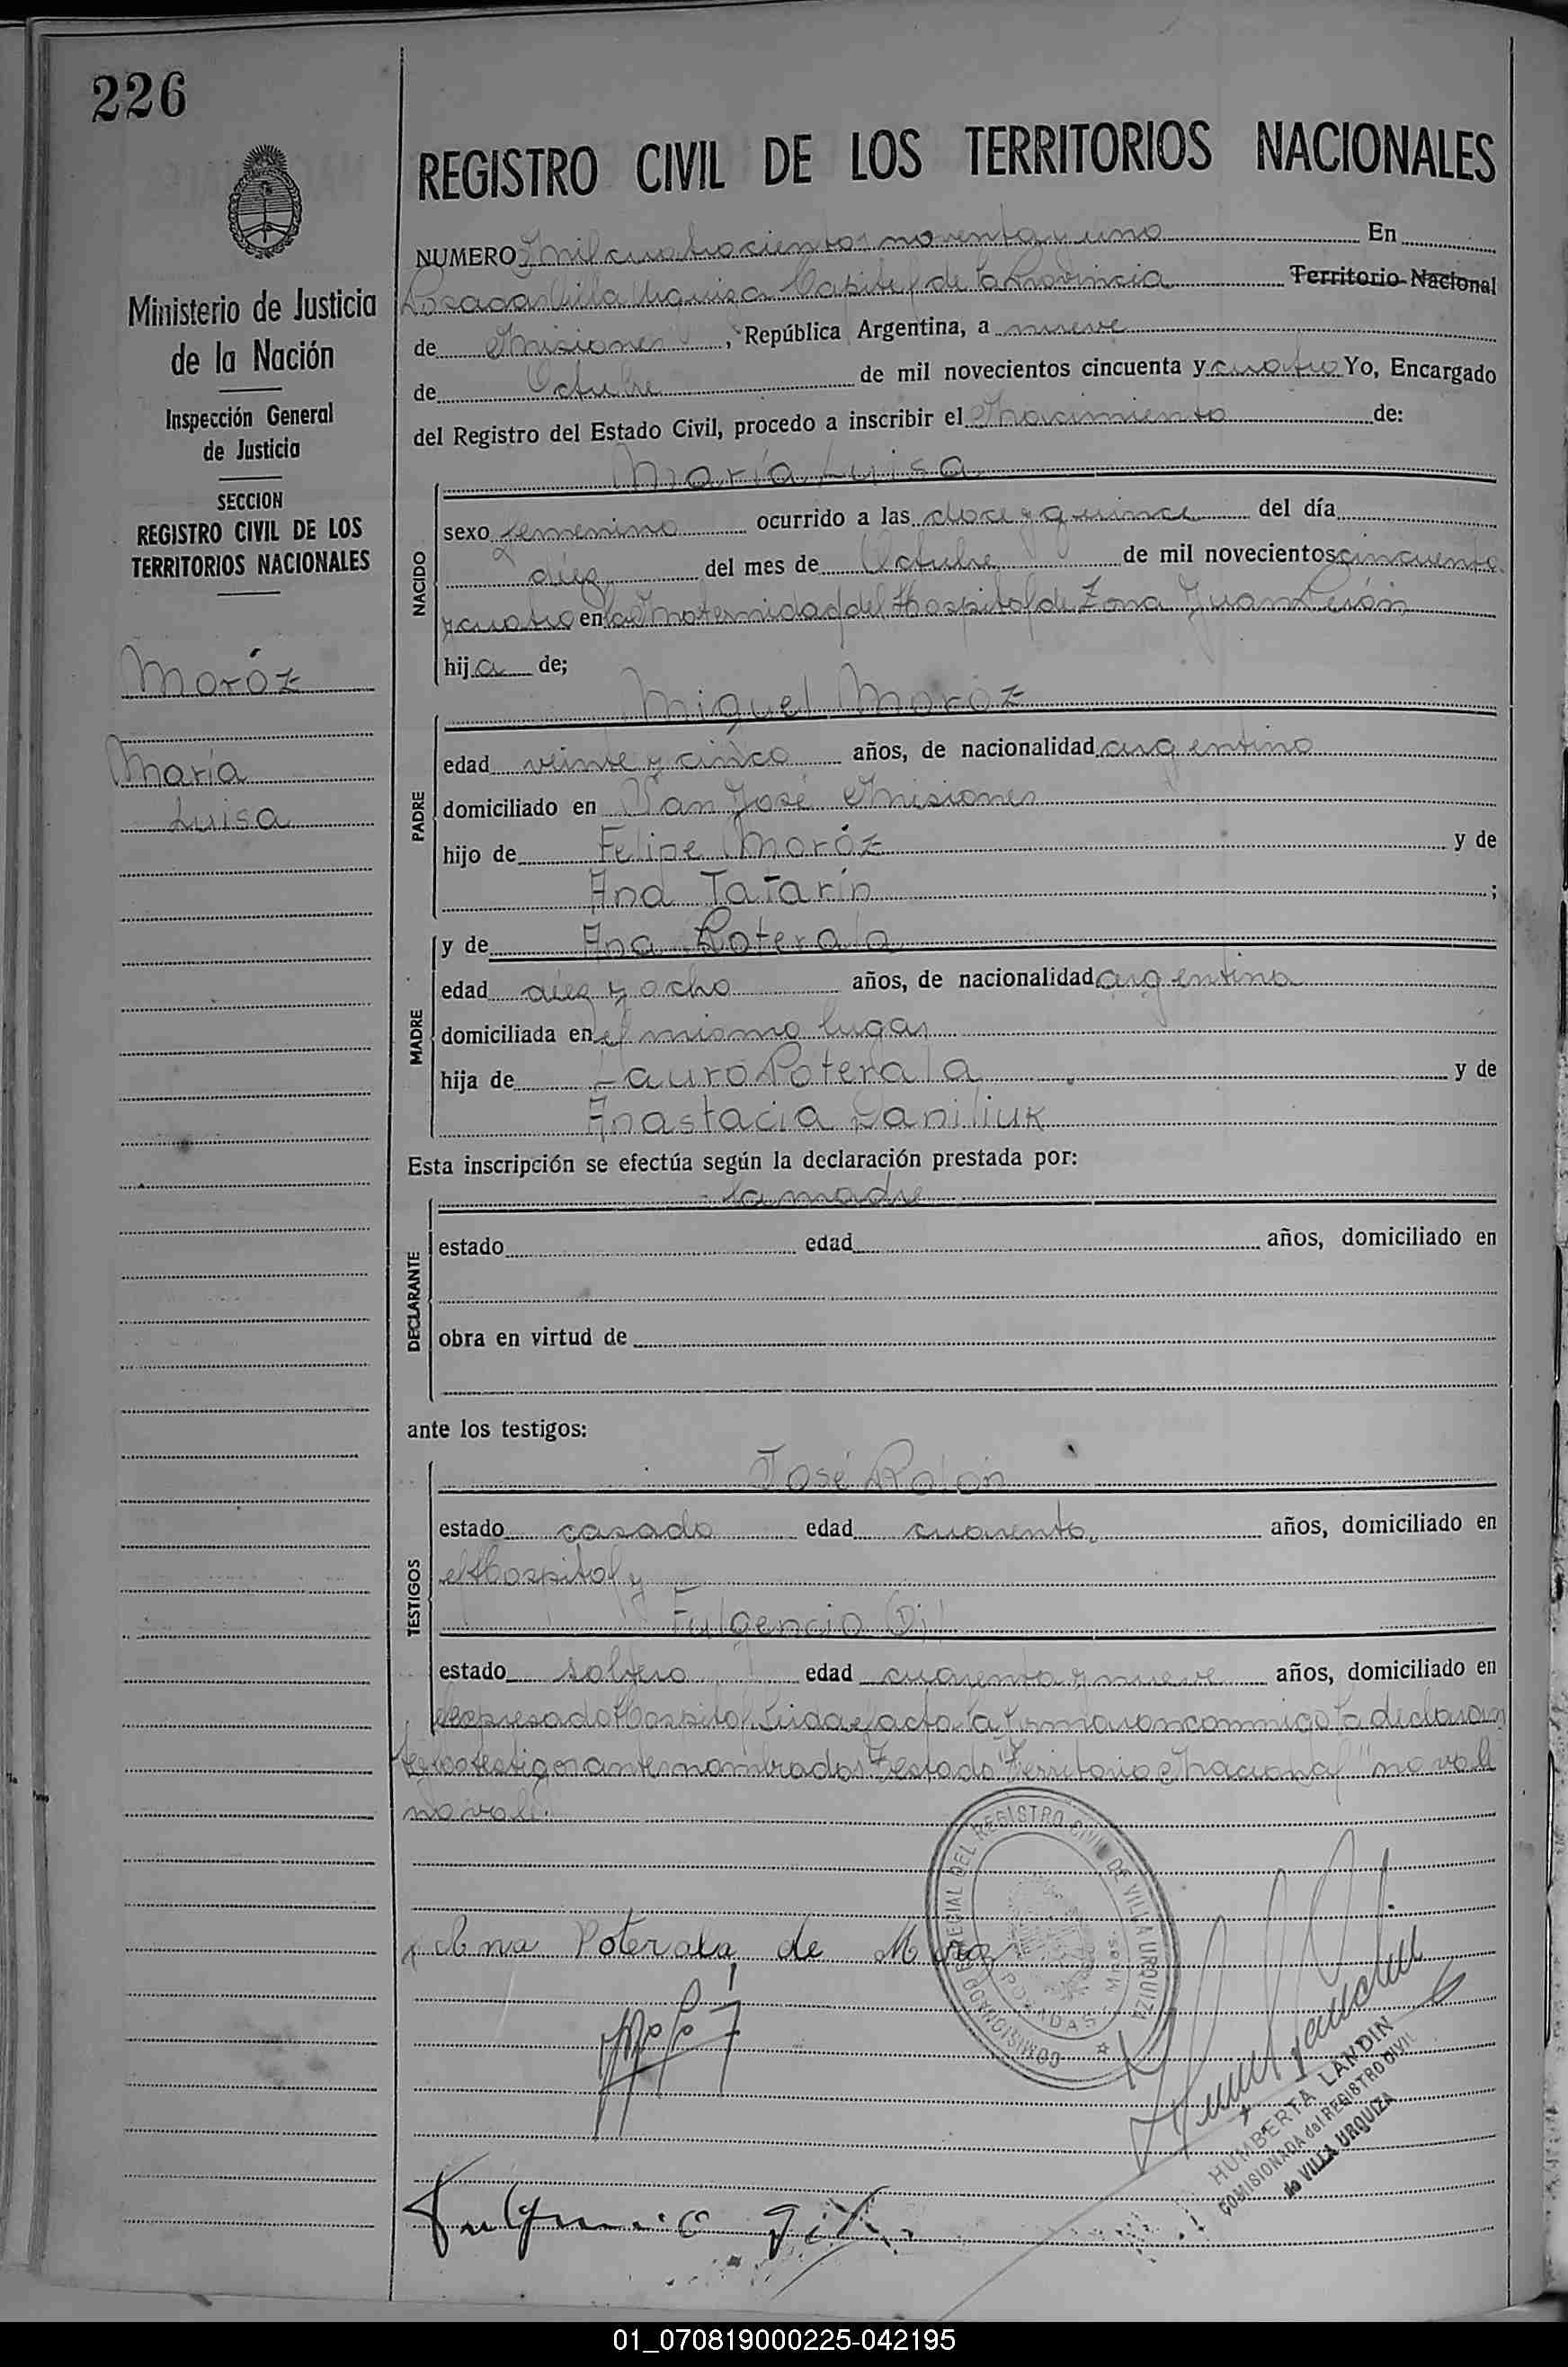 226
Ministerio de Justicia
de la Nación
Inspección General
de Justicia
SECCION
REGISTRO CIVIL DE LOS
TERRITORIOS NACIONALES
Moróz
María
Luisa
REGISTRO CIVIL DE LOS TERRITORIOS NACIONALES
NUMERO mil cuatrocientos noventa y uno En
Posadas Villa Urquiza Capital de la Provincia Territorio Nacional
de Misiones, República Argentina, a nueve
de Octubre de mil novecientos cincuenta y cuatro Yo, Encargado
del Registro del Estado Civil, procedo a inscribir el Nacimiento de:
María Luisa
NACIDO
sexo femenino ocurrido a las doce y quince del día
diez del mes de Octubre de mil novecientos cincuenta
y cuatro en la Maternidad del Hospital de Zona Juan Perón
hija de;
Miguel Moróz
PADRE
edad veinte y cinco años, de nacionalidad argentino
domiciliado en San José Misiones
hijo de Felipe Moróz y de
Ana Tatarín ;
MADRE
y de Ana Poterala
edad diez y ocho años, de nacionalidad argentina
domiciliada en el mismo lugar
hija de Lauro Poterala y de
Anastacia Daniliuk
Esta inscripción se efectúa según la declaración prestada por:
la madre
DECLARANTE
estado edad años, domiciliado en
obra en virtud de
ante los testigos:
José Rolón
TESTIGOS
estado casado edad cuarenta años, domiciliado en
el Hospital y
Fulgencio Gil
estado soltero edad cuarenta y nueve años, domiciliado en
el expresado Hospital. Leida el acta la firmaron conmigo la declaran
te y los testigos antes nombrados Testado "Territorio Nacional" no vale
no vale.
Ana Poterala de Moroz
COMISIONADO ESPECIAL DEL REGISTRO CIVIL DE VILLA URQUIZA
POSADAS - Mnes.
HUMBERTA LANDIN
COMISIONADA del REGISTRO CIVIL
de VILLA URQUIZA
Fulgencio Gil
01_070819000225-042195